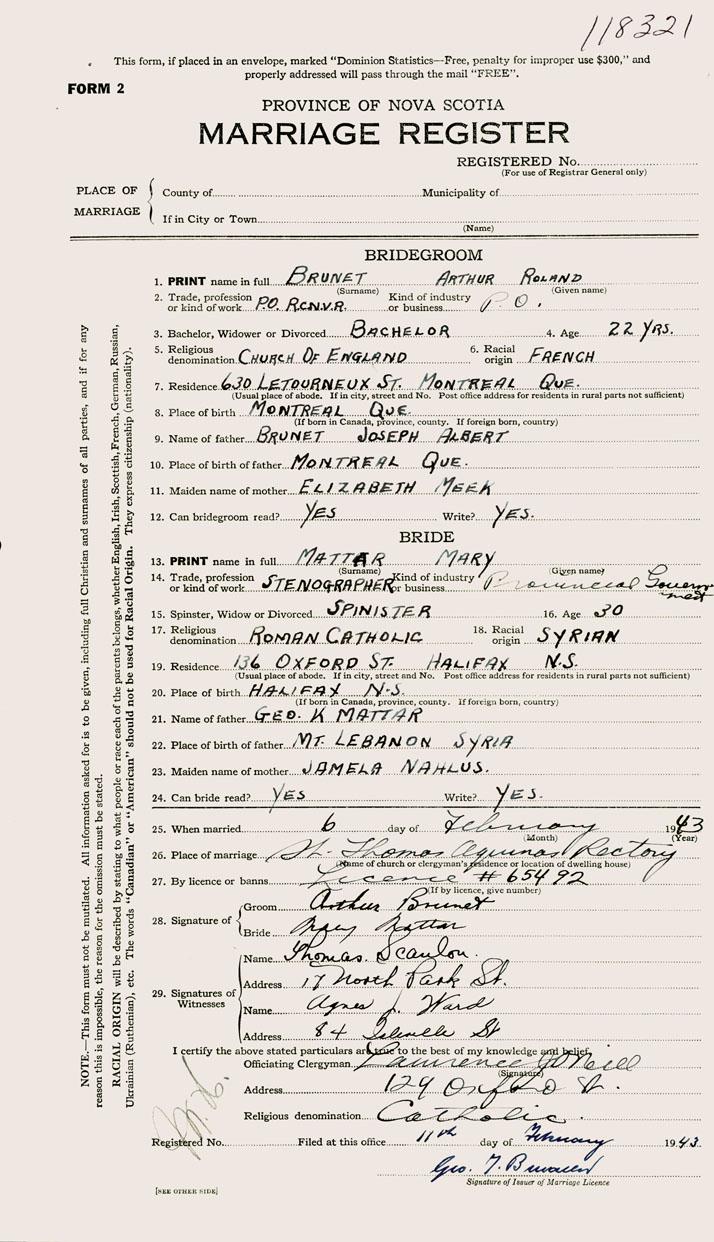 118321
This form, if placed in an envelope, marked "Dominion Statistics—Free, penalty for improper use $300," and
properly addressed will pass through the mail "FREE".
FORM 2
PROVINCE OF NOVA SCOTIA
MARRIAGE REGISTER
REGISTERED No.
(For use of Registrar General only)
PLACE OF MARRIAGE
County of Municipality of
If in City or Town
(Name)
BRIDEGROOM
1. PRINT name in full BRUNET ARTHUR ROLAND
(Surname) (Given name)
2. Trade, profession or kind of work P.O. R.C.N.V.R. Kind of industry or business P.O.
3. Bachelor, Widower or Divorced BACHELOR 4. Age 22 YRS.
5. Religious denomination CHURCH OF ENGLAND 6. Racial origin FRENCH
7. Residence 630 LETOURNEUX ST. MONTREAL QUE.
(Usual place of abode. If in city, street and No. Post office address for residents in rural parts not sufficient)
8. Place of birth MONTREAL QUE.
(If born in Canada, province, county. If foreign born, country)
9. Name of father BRUNET JOSEPH ALBERT
10. Place of birth of father MONTREAL QUE.
11. Maiden name of mother ELIZABETH MEEK
12. Can bridegroom read? YES Write? YES.
BRIDE
13. PRINT name in full MATTAR MARY
(Surname) (Given name)
14. Trade, profession or kind of work STENOGRAPHER Kind of industry or business Provincial Government
15. Spinster, Widow or Divorced SPINISTER 16. Age 30
17. Religious denomination ROMAN CATHOLIC 18. Racial origin SYRIAN
19. Residence 136 OXFORD ST. HALIFAX N.S.
(Usual place of abode. If in city, street and No. Post office address for residents in rural parts not sufficient)
20. Place of birth HALIFAX N.S.
(If born in Canada, province, county. If foreign born, country)
21. Name of father GEO. K MATTAR
22. Place of birth of father MT. LEBANON SYRIA
23. Maiden name of mother JAMELA NAHLUS.
24. Can bride read? YES Write? YES.
25. When married 6 day of February 1943
(Month) (Year)
26. Place of marriage St. Thomas Aquinas Rectory
(Name of church or clergyman's residence or location of dwelling house)
27. By licence or banns Licence # 65492
(If by licence, give number)
28. Signature of
Groom Arthur Brunet
Bride Mary Mattar
29. Signatures of Witnesses
Name Thomas Scanlon.
Address 17 North Park St.
Name Agnes J. Ward
Address 84 St
I certify the above stated particulars are true to the best of my knowledge and belief.
Officiating Clergyman Lawrence J O'Neill
(Signature)
Address 129 Oxford St.
Religious denomination Catholic.
Registered No. Filed at this office 11th day of February 1943
Geo. T.
Signature of Issuer of Marriage Licence
[SEE OTHER SIDE]
NOTE.—This form must not be mutilated. All information asked for is to be given, including full Christian and surnames of all parties, and if for any
reason this is impossible, the reason for the omission must be stated.
RACIAL ORIGIN will be described by stating to what people or race each of the parents belongs, whether English, Irish, Scottish, French, German, Russian,
Ukrainian (Ruthenian), etc. The words "Canadian" or "American" should not be used for Racial Origin. They express citizenship (nationality).